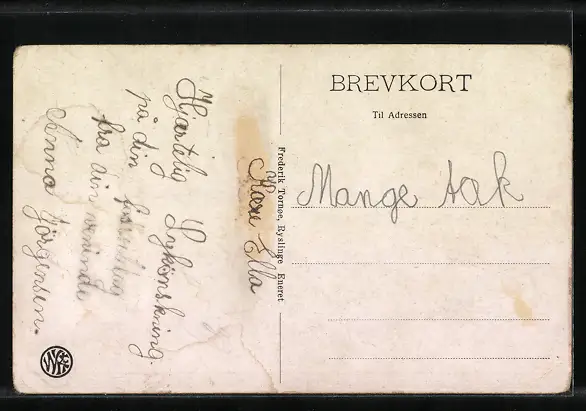 BREVKORT
Til Adressen
Mange tak
Frederik Tørnøe, Ryslinge Eneret
Kære Ella
Hjærtelig Lykønskning
på din
fra din veninde
Anna Jørgensen.